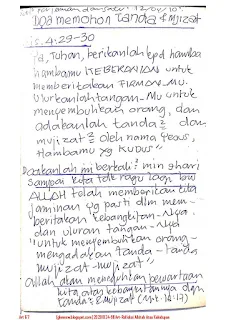 Doa memohon Tanda & Mjizat
Kis. 4:29-30
Yd, Tuhan, berikanlah kpd hamba
hambamu KEBERANIAN untuk
memberitakan FIRMAN-MU
Ulurkanlah tangan-Mu untuk
menyembuhkan orang, dan
adakanlah tanda² dan
mujizat² Oleh nama Yesus,
Hambamu yg KUDUS"
Doakanlah ini berkali² min 9 hari
sampai kita tak ragu lagi bhw
ALLAH telah memberikan kita
jaminan yg pasti dlm mem-
beritakan kebangkitan-Nya
dan uluran tangan-Nya
"untuk menyembuhkan orang-
mengadakan tanda-tanda
mujizat-mujizat"
Allah akan meneguhkan pewartaan
kita atas kebangkitannya dgn
tanda² & mujizat